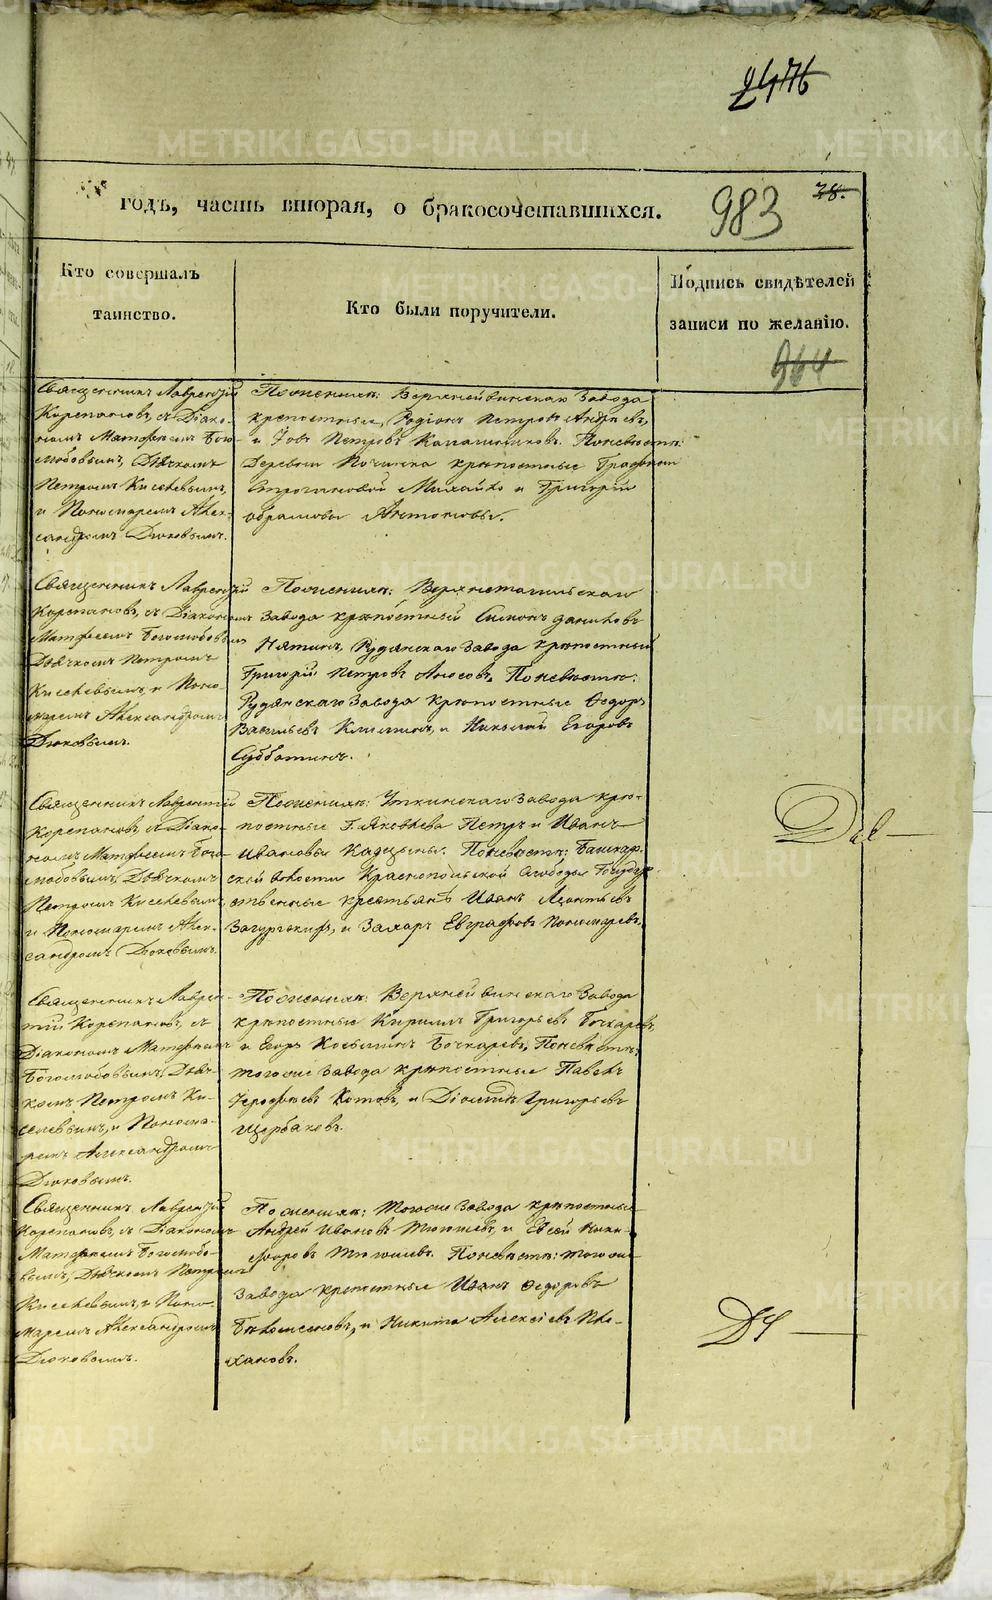 2476
годъ, часть вторая, о бракосочетавшихся.
983
38.
Кто совершалъ
таинство.
Кто были поручители.
Подпись свидѣтелей
записи по желанію.
964
Священникъ Лаврентій
Корепановъ, съ Діако-
номъ Матфеемъ Бого-
любовымъ, Дьячкомъ
Петромъ Киселевымъ,
и Пономаремъ Алек-
сандромъ Дюковымъ.
По женихѣ: Верхнейвинскаго Завода
крепостные, Родіонъ Петровъ
и Іовъ Петровъ Калашниковъ. По невѣстѣ:
Деревни Починка крѣпостные Графини
Строгановой Михайло и Григорій
Абрамовы Антоновы.
Священникъ Лаврентій
Корепановъ, съ Діакономъ
Матфеемъ Боголюбовымъ
Дьячкомъ Петромъ
Киселевымъ, и Поно-
маремъ Александромъ
Дюковымъ.
По женихѣ: Верхнетагильскаго
Завода крѣпостный Симонъ Даниловъ
Рудянскаго Завода крѣпостный
Григорій Петровъ По невѣстѣ:
Рудянскаго Завода крѣпостные Ѳедоръ
Васильевъ и Николай Егоровъ
Субботинъ.
Священникъ Лаврентій
Корепановъ съ Діако-
номъ Матфеемъ Бого-
любовымъ Дьячкомъ
Петромъ Киселевымъ
и Пономаремъ Алек-
сандромъ Дюковымъ.
По женихѣ: Уткинскаго Завода крѣ-
постные Г. Яковлева Петръ и Иванъ
Ивановы По невѣстѣ: Башкар-
ской волости Краснопольской Слободы Государ-
ственные крестьянѣ Иванъ Леонтьевъ
и Захаръ Евграфовъ Пономаревъ.
Священникъ Лаврен-
тій Корепановъ, съ
Діакономъ Матфеемъ
Боголюбовымъ, Дьяч-
комъ Петромъ Ки-
селевымъ, и Понома-
ремъ Александромъ
Дюковымъ.
По женихѣ: Верхнейвинскаго Завода
крѣпостные Кирилъ Григорьевъ Бочкаревъ,
и Егоръ Козьминъ Бочкаревъ, По невѣстѣ:
того же Завода крѣпостные Павелъ
Ерофѣевъ Котовъ, и Діомидъ Григорьевъ
Щербаковъ.
Священникъ Лаврентій
Корепановъ, съ Діакономъ
Матфеемъ Боголюбо-
вымъ, Дьячкомъ Петромъ
Киселевымъ, и Поно-
маремъ Александромъ
Дюковымъ.
По женихѣ: того же Завода крѣпостные
Андрей Ивановъ и Евсей Ники-
форовъ По невѣстѣ: того же
Завода крепостные Иванъ Ѳедоровъ
и Никита Алексіевъ Пле-
хановъ.
METRIKI.GASO-URAL.RU